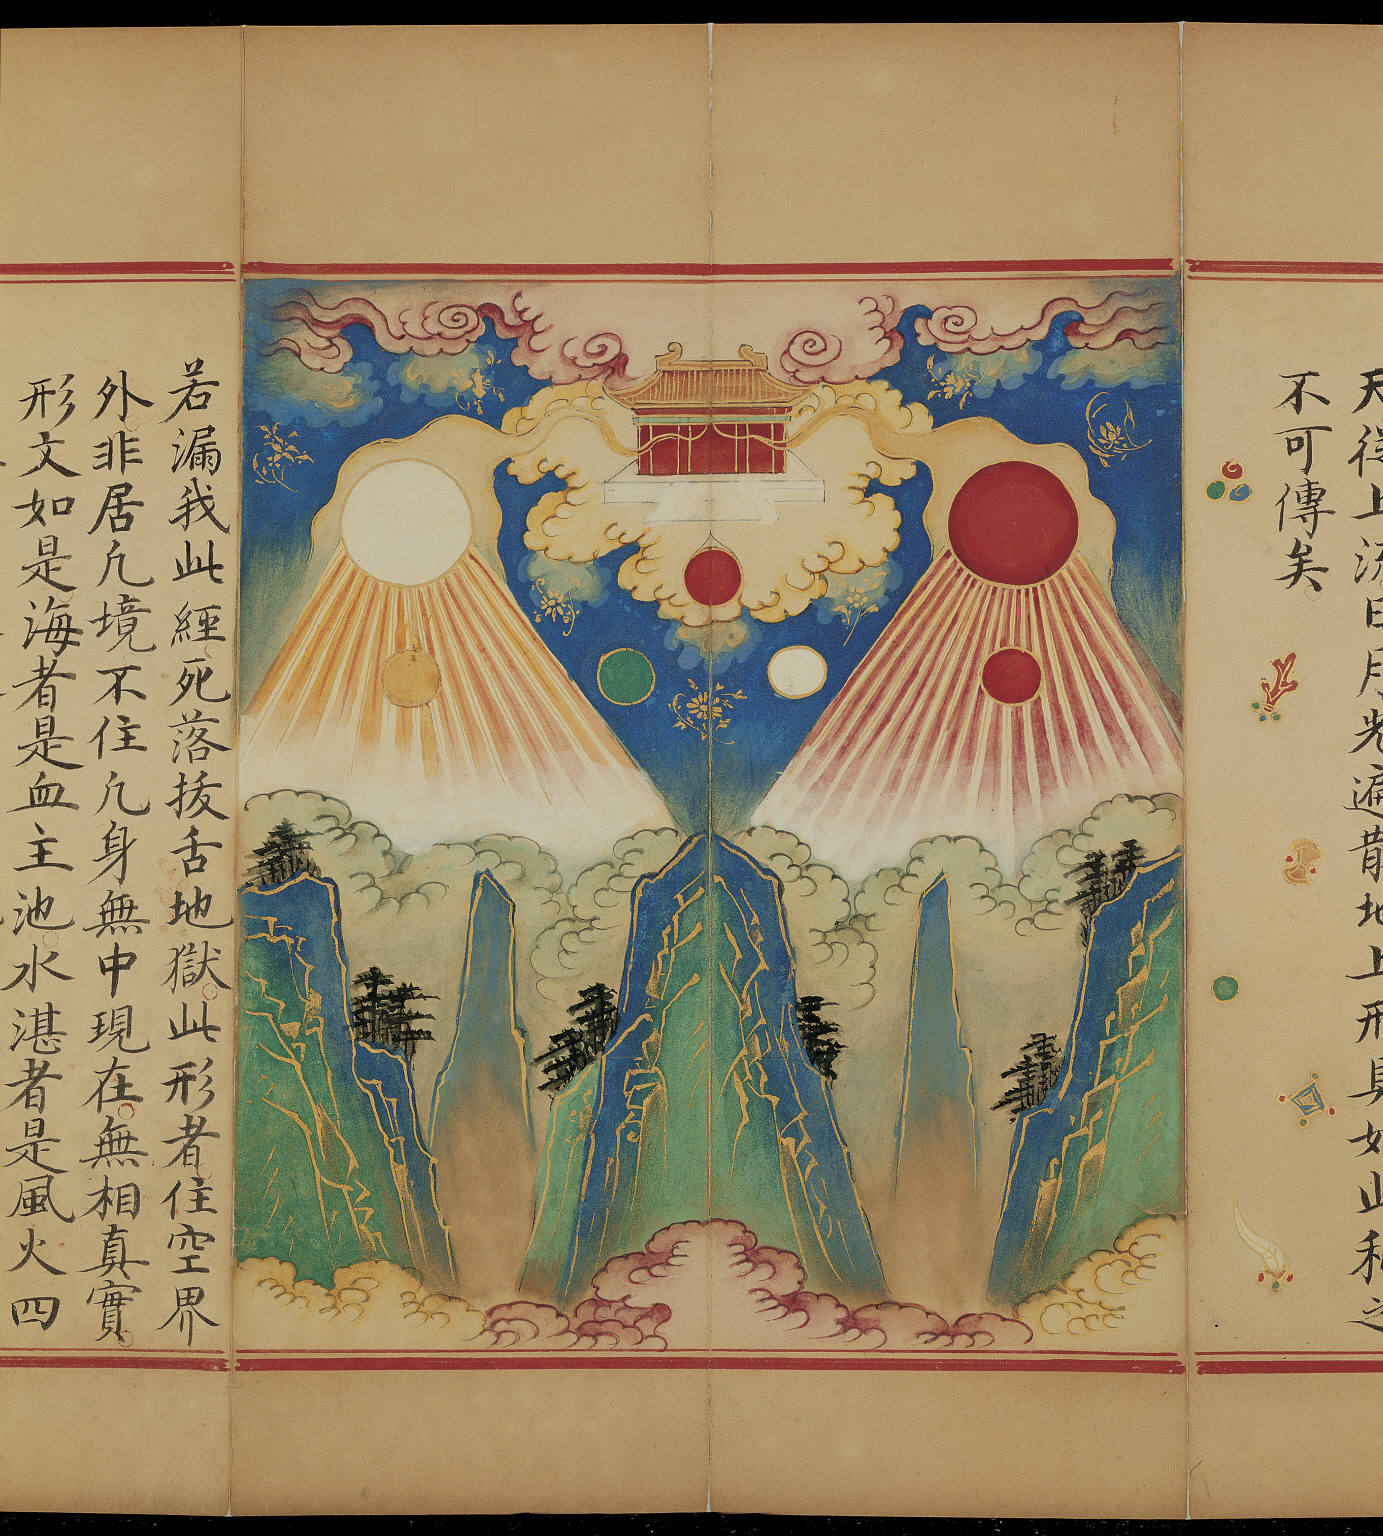 天從上流日月光遍散地上刑具如此私之
不可傳矣
若漏我此經死落拔舌地獄此形者住空界
外非居凡境不住凡身無中現在無相真實
形文如是海者是血主池水湛者是風火四